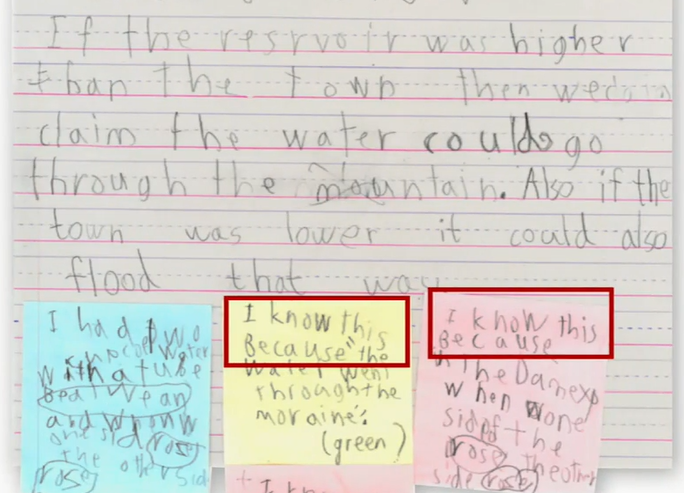 If the resrvoir was higher
than the town then we
claim the water could go
through the mountain. Also if the
town was lower it could also
flood that way
I had two
water
with a tube
and when
one sid rose
the other sid
rose
I know this
Because "the
water went
through the
moraine".
(green)
+ I
I know this
Because
in the Damexp
when one
sid of the
rose the other
side rose